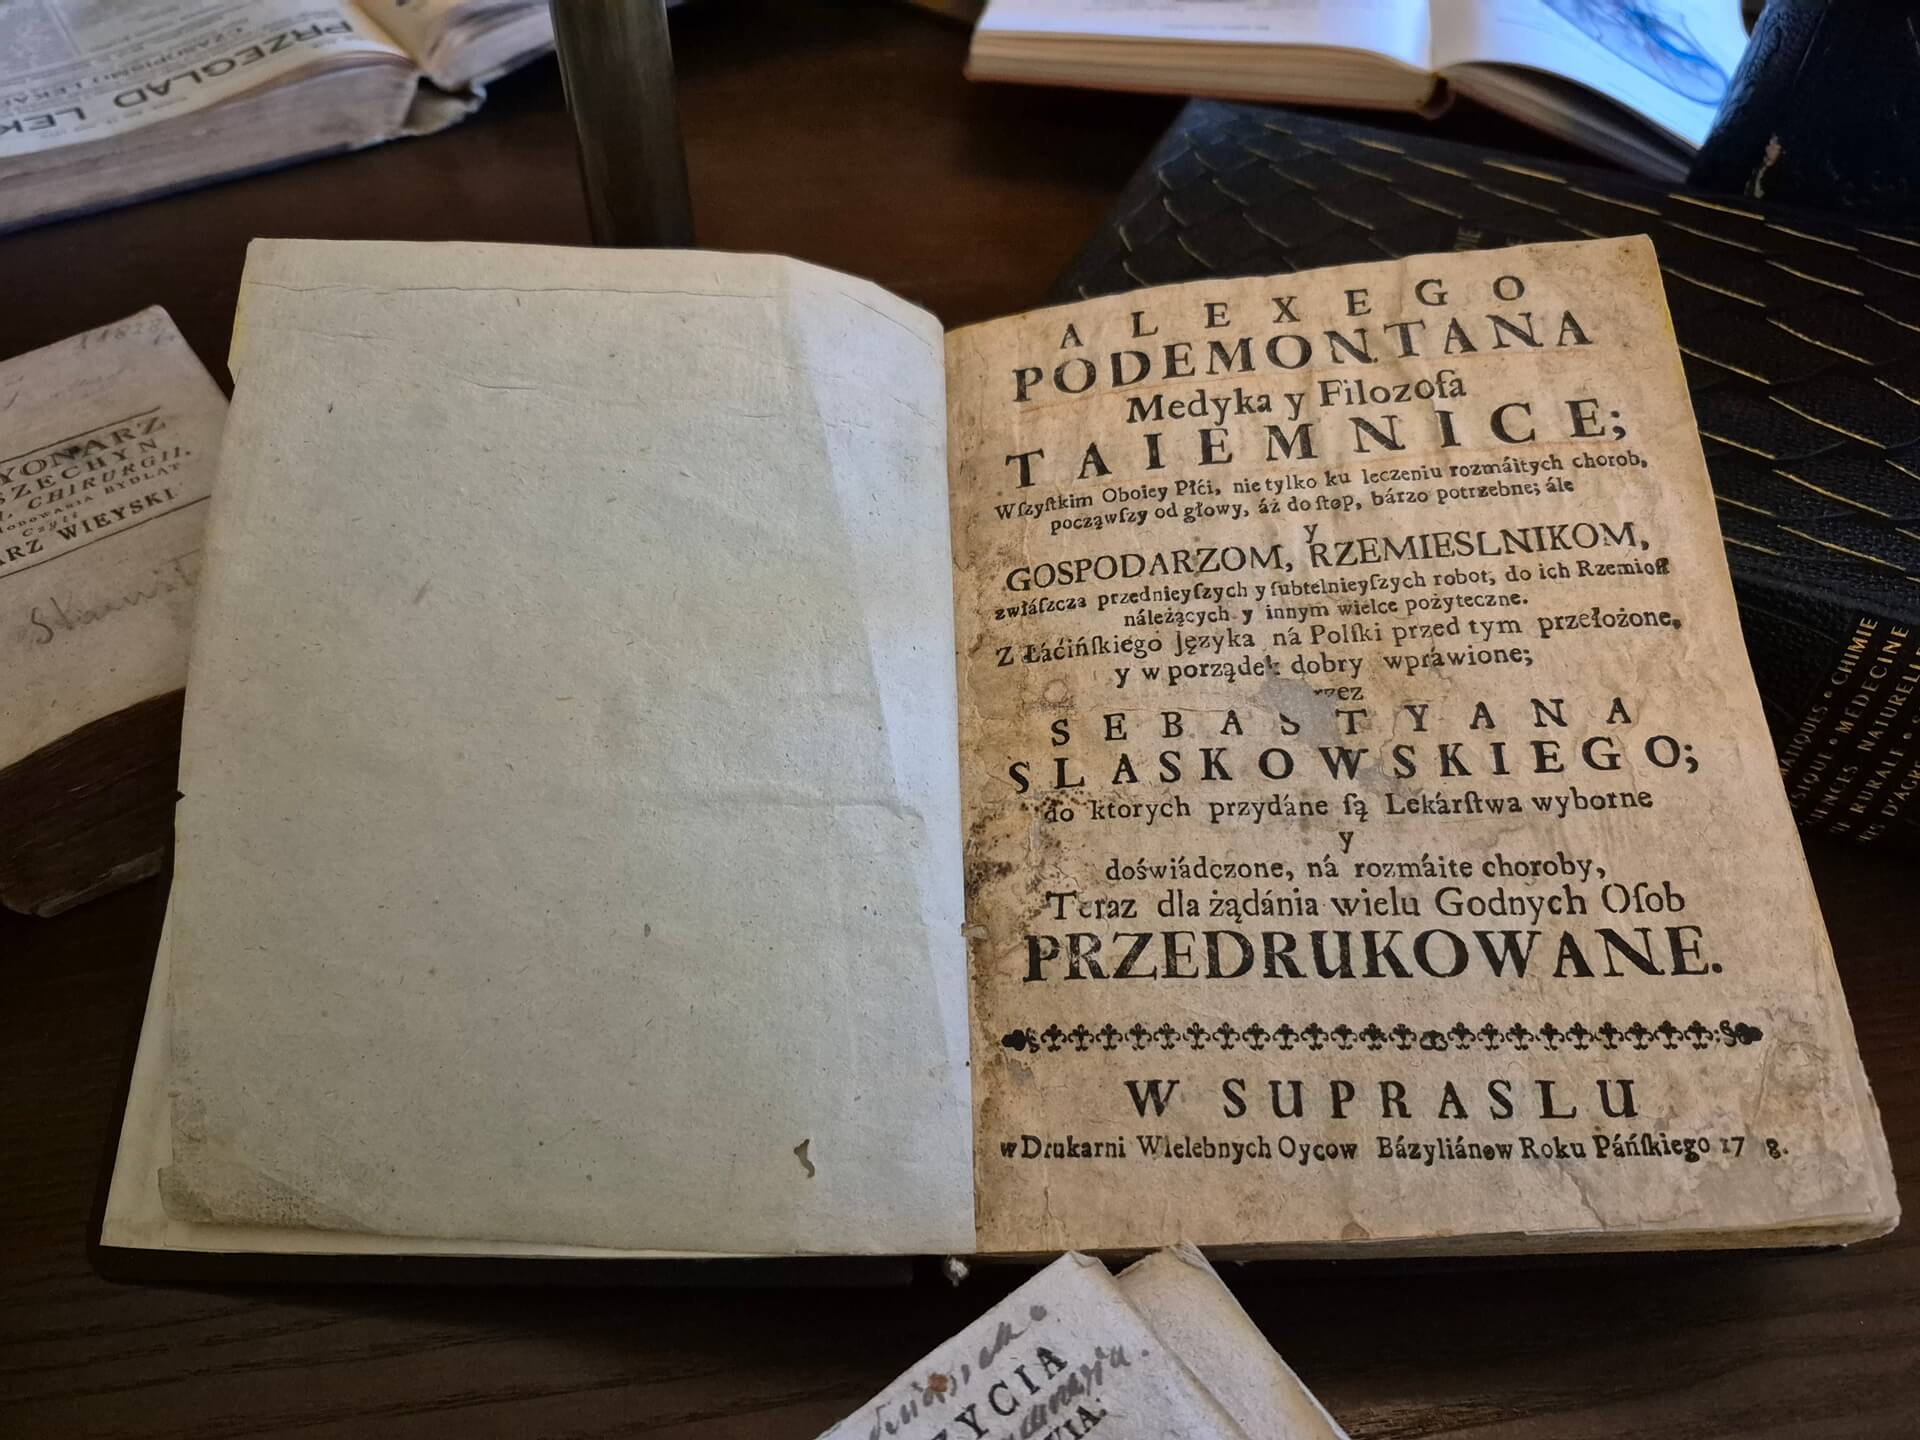 PRZEGLAD LEK
CZASOPISMO LEKA
11828
YONARZ
SZECHYN
I, CHIRURGII,
HODOWANIA BYDLAT
CZYLI
ARZ WIEYSKI
ALEXEGO
PODEMONTANA
Medyka y Filozofa
TAIEMNICE;
Wſzyſtkim Oboiey Płći, nie tylko ku leczeniu rozmáitych chorob,
począwſzy od głowy, áż do ſtop, bárzo potrzebne; ále
y
GOSPODARZOM, RZEMIESLNIKOM,
zwłáſzcza przednieyſzych y ſubtelnieyſzych robot, do ich Rzemioſł
náleżących y innym wielce pożyteczne.
Z Łáćińſkiego języka ná Polſki przed tym przełożone,
y w porządek dobry wpráwione;
rzez
SEBASTYANA
SLASKOWSKIEGO;
do ktorych przydáne ſą Lekárſtwa wyborne
y
doświádczone, ná rozmáite choroby,
Teraz dla żądánia wielu Godnych Oſob
PRZEDRUKOWANE.
W SUPRASLU
w Drukarni Wielebnych Oycow Bázyliánow Roku Páńſkiego 17 8.
MATIQUES • CHIMIE
YSIQUE • MEDECINE
ENCES NATURELLE
RURALE •
S D'AGR
ZYCIA